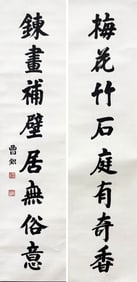 梅花竹石庭有奇香
鍊畫補壁居無俗意
曹錕